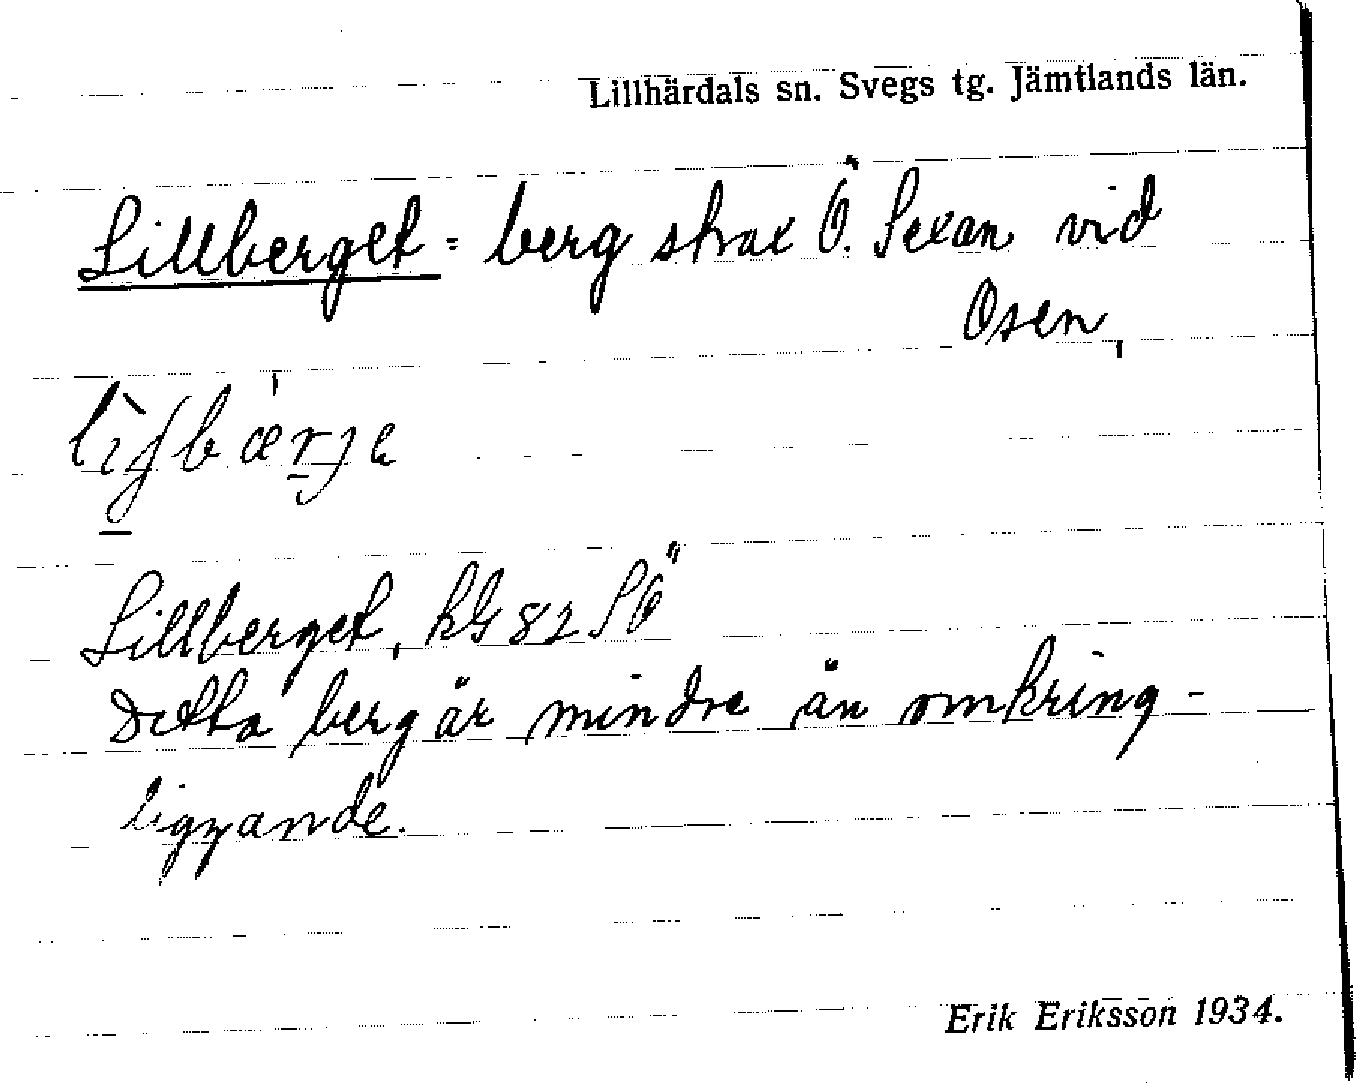 Lillhärdals sn. Svegs tg. Jämtlands län.
Lillberget = berg strax Ö. Sexan vid
Osen,
Lillberget, kG 82 SÖ
Detta berg är mindre än omkring-
liggande.
Erik Eriksson 1934.